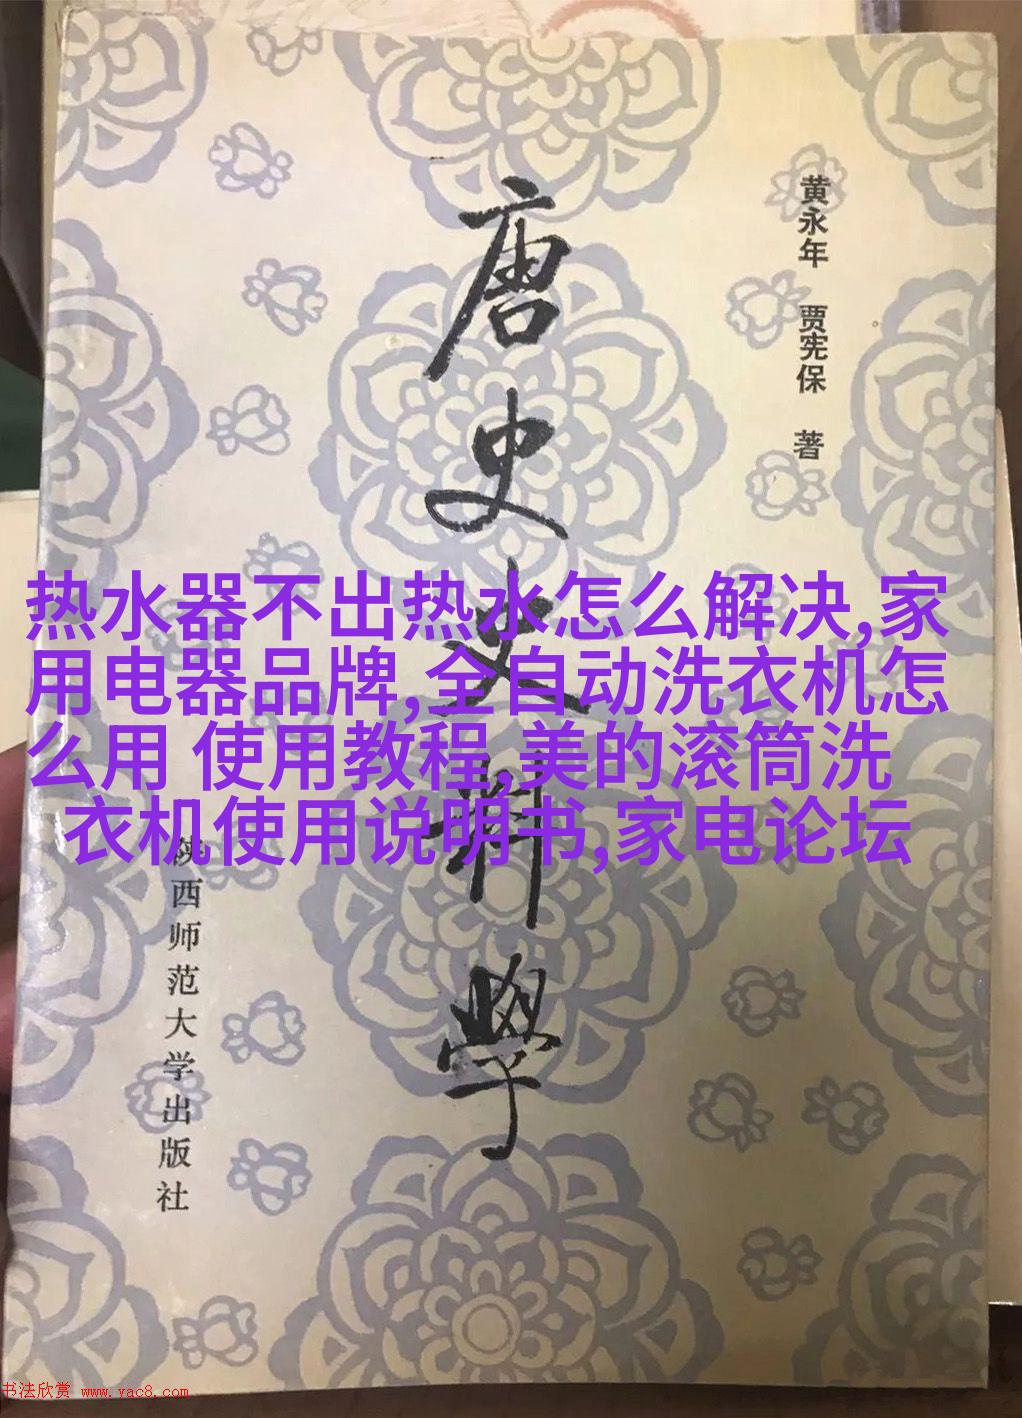 黄永年 贾宪保 著
唐史史料学
热水器不出热水怎么解决,家
用电器品牌,全自动洗衣机怎
么用 使用教程,美的滚筒洗
衣机使用说明书,家电论坛
陕西师范大学出版社
书法欣赏 www.yac8.com